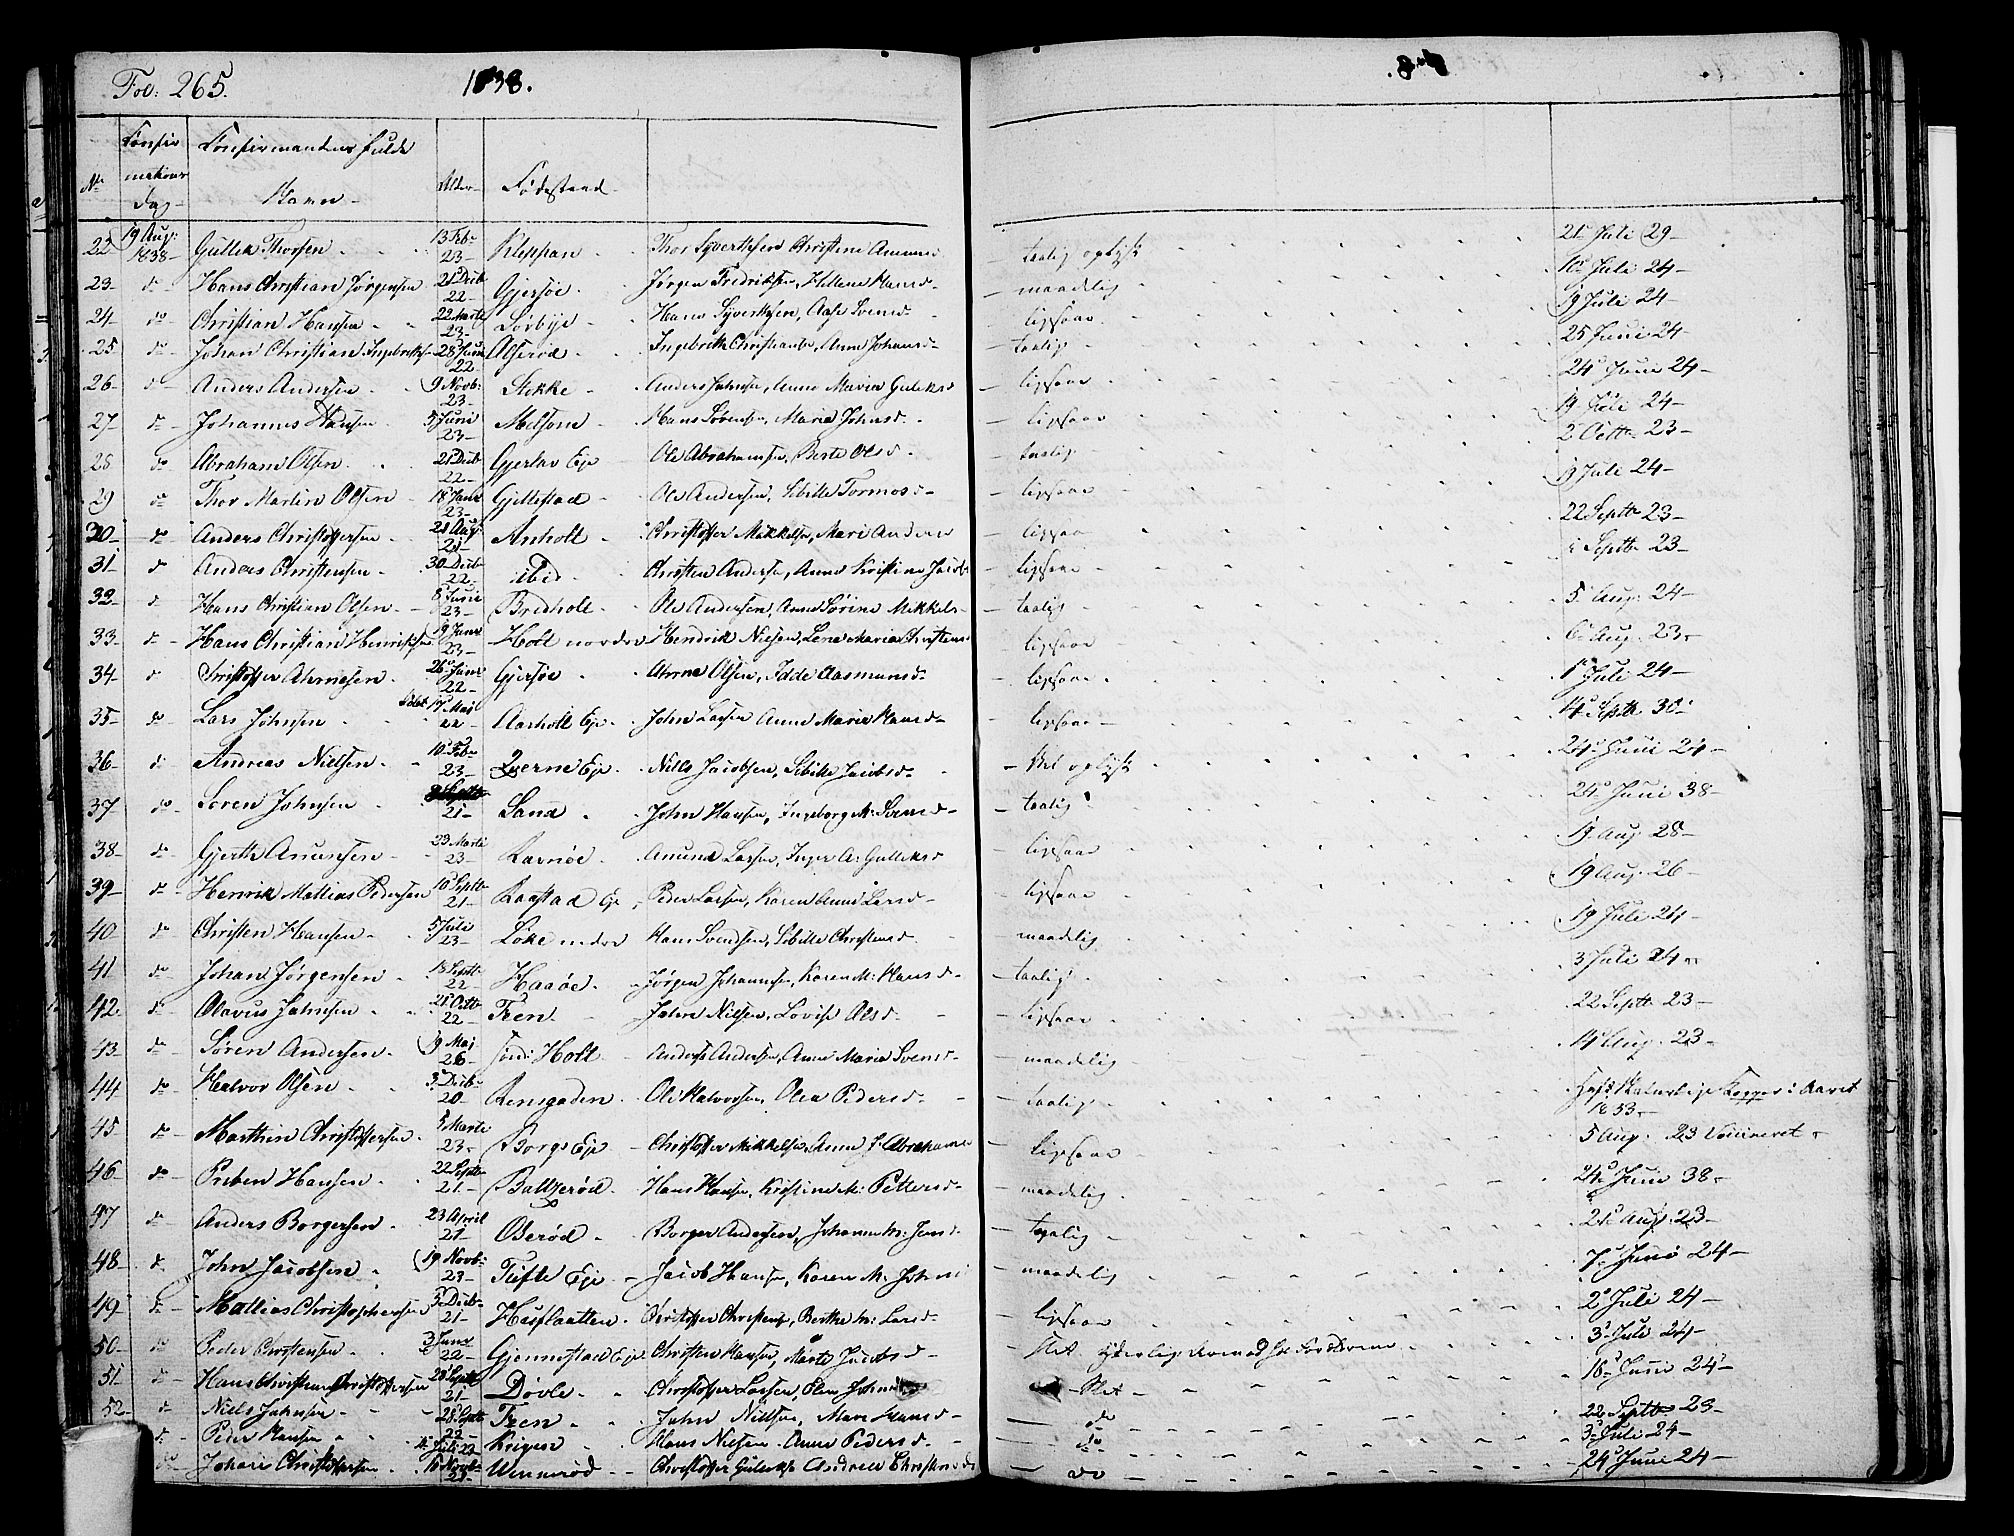 Fol: 265.
1838.
No
Confir
mations
Dag
Confirmandens fulde
Navn
Alder
Fødested
22 19 Aug: 1838 Gullek Thorsen 13 Feb 23 Kleppan Thor Syvertsen Christine Amunds taalig oplyst 21 Juli 29
23 do Hans Christian Jørgensen 21 Decb 22 Gjersøe Jørgen Fredriksen, Hellene Hansd maadelig 10 Juli 24
24 do Christian Hansen 22 Marti 23 Sørbye Hans Syvertsen, Aase Svensd ligesaa 19 Juli 24
25 do Johan Christian Ingebriktsen 28 Juni 22 Olserød Ingebrikt Christiansen, Anne Johansd taalig 25 Juni 24
26 do Anders Andersen 9 Novb: 23 Stokke Anders Johnsen, Anne Maria Guleksd ligesaa 24 Juni 24
27 do Johannes Hansen 5 Juni 23 Melsom Hans Sørensen, Maria Johnsd ligesaa 19 Juli 24
28 do Abraham Olsen 21 Decb 22 Gjerlav Eje Ole Abrahamsen, Berte Olsd taalig 2 Octb 23
29 do Thor Martin Olsen 18 Janr 23 Gjellestad Ole Andersen, Sibille Tormosd ligesaa 19 Juli 24
30 do Anders Christophersen 21 Aug 21 Anholt Christoffer Mikkelsen, Mari Andersd ligesaa 22 Septb 23
31 do Anders Christensen 30 Decb 22 ibid Christen Andersen, Anne Kristine Jacobsd ligesaa 1 Septb 23
32 do Hans Christian Olsen 8 Juni 23 Bredholt Ole Andersen, Anne Sørine Mikkels taalig 5 Aug: 24
33 do Hans Christian Henriksen 19 Janr 23 Holt nordre Hendrik Nielsen, Lene Maria Christensd ligesaa 6 Aug. 23
34 do Christoffer Ahrnesen 26 Janr 22 Gjersøe Ahrne Olsen, Idde Aasmunsd ligesaa 1 Juli 24
35 do Lars Johnsen 17 Maj 22 Aasholt Eje John Larsen Anne Marie Hansd ligesaa 14 Septb 30
36 do Andreas Nielsen 10 Feb 23 Qverne Eje Niels Jacobsen, Sibille Jacobsd Vel oplyst 24 Juni 24
37 do Søren Johnsen Septb 21 Sand John Hansen, Ingeborg M: Svensd taalig 24 Juni 38
38 do Gjerth Amunsen 23 Marti 23 Ravnøe Amund Larsen, Inger A: Gulleksd ligesaa 19 Aug 28
39 do Henrik Mathias Pedersen 10 Septb 21 Raastad Eje Peder Larsen, Karen Anne Larsd ligesaa 19 Aug. 26
40 do Christen Hansen 5 Juli 23 Løke nedre Hans Svendsen, Sibille Christensd maadelig 19 Juli 24
41 do Johan Jørgensen 13 Septb 22 Haaøe Jørgen Johannesen, Karen M: Hansd taalig 3 Juli 24
42 do Olavus Johnsen 21 Octb 22 Fen John Nielsen, Lovise Olsd ligesaa 22 Septb 23
43 do Søren Andersen 19 Maj 26 Holt Anders Andersen, Anne Maria Svensd maadelig 14 Aug. 23
44 do Halvor Olsen 3 Decb 20 Rensgaden Ole Halvorsen, Olea Pedersd taalig Havt Naturlige Kopper i Aaret 1833
45 do Marthin Christophersen 5 Marti 23 Borge Eje Christoffer Mikkelsen, Anne Abrahams ligesaa 5 Aug. 23 Vaccineret
46 do Preben Hansen 22 Septb 21 Baltzerød Hans Hansen, Kristine M: Pettersd maadelig 24 Juni 38
47 do Anders Borgersen 23 April 21 Olserød Borger Andersen, Johanne M: Jensd taalig 21 Aug. 23
48 do John Jacobsen 19 Novb 23 Tufte Eje Jacob Hansen, Karen M: Johns maadelig 7 Juni 24
49 do Mathias Christophersen 3 Decb 21 Huuslaatten Christoffer Christensen, Berthe M: Larsd ligesaa 2 Juli 24
50 do Peder Christensen 3 Janr 22 Gjennestad Eje Christen Hansen, Marte Jacobsd Slet 3 Juli 24
51 do Hans Christian Christophersen 28 Septb 21 Døvle Christoffer Larsen, Elen Johns Slet 18 Juni 24
52 Niels Johnsen 28 Septb 22 Fren John Nielsen, Mari Hansd do 22 Septb 23
do Peder Hansen 4 Juli 23 Krigen Hans Nielsen Anne Pedersd do 3 Juli 24
do Johan Christophersen 16 Novb 23 Winnerød Christoffer Guleksen Andrea Christensd do 24 Juni 24